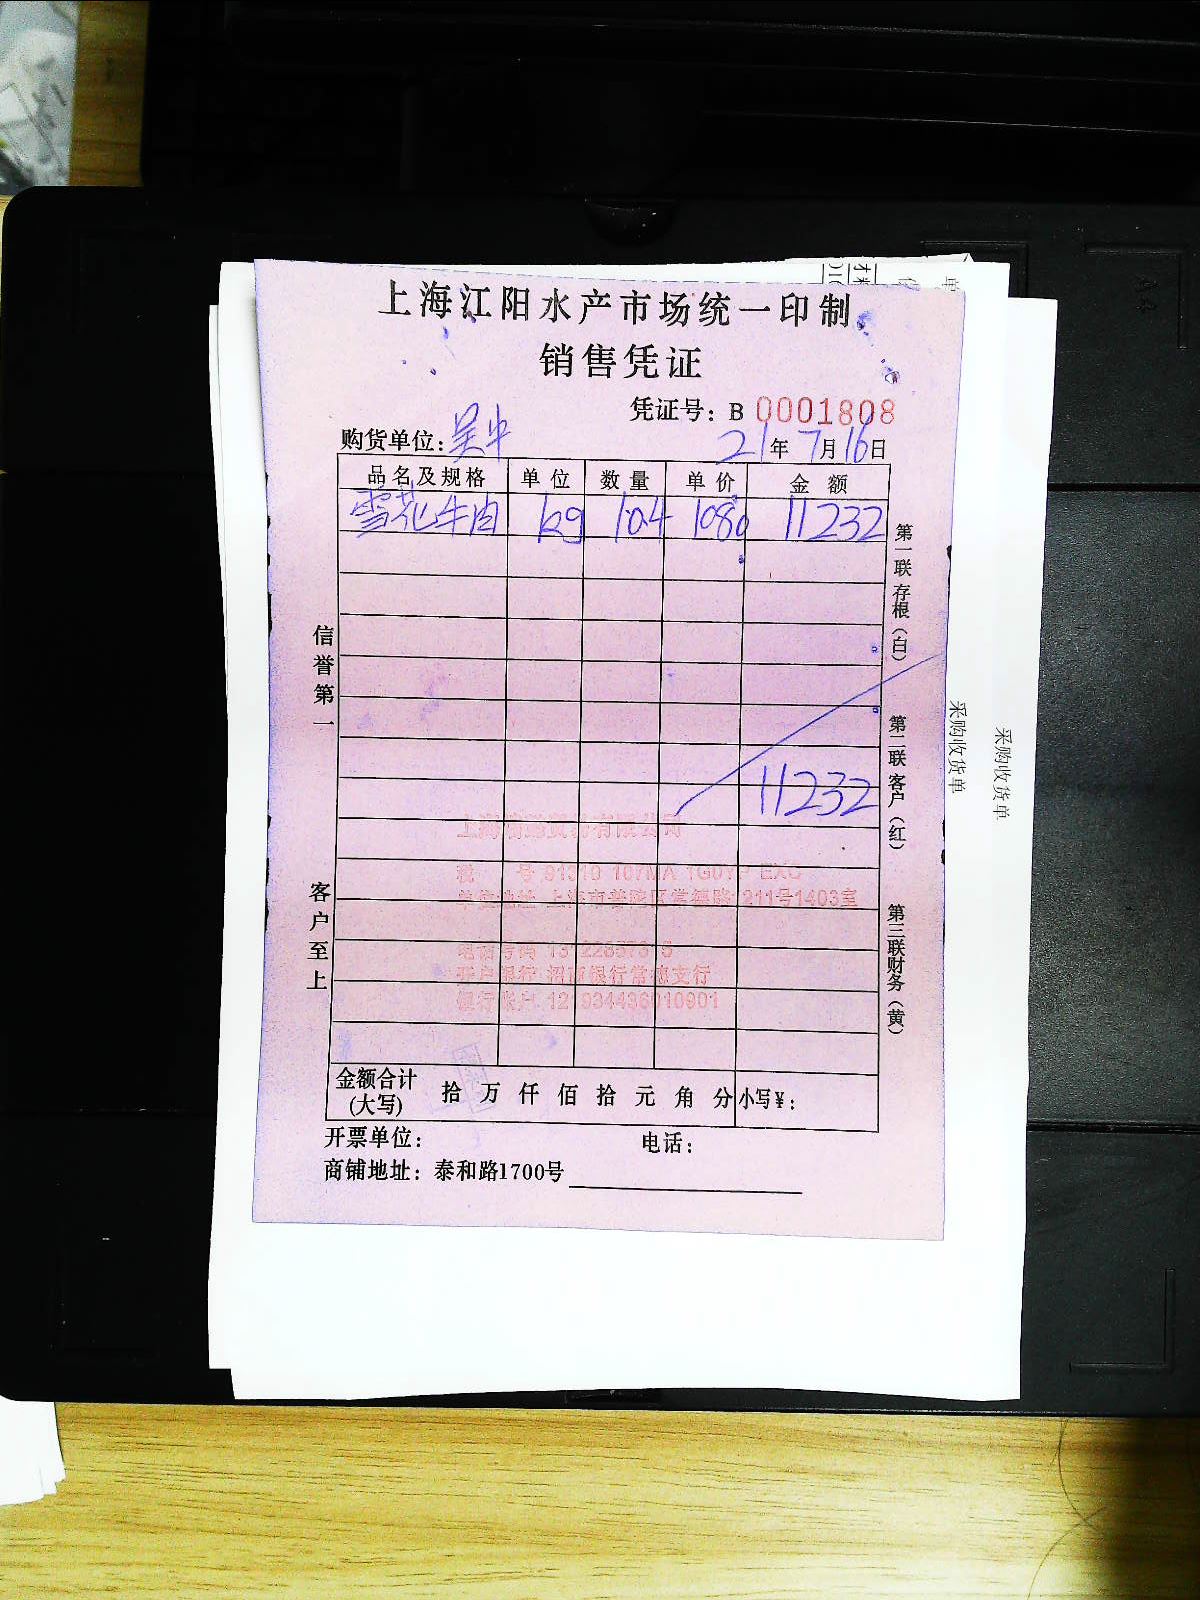 上海江阳水产市场统一印制
销售凭证
凭证号：B 0001808
购货单位：吴中 21年7月16日
品名及规格 单位 数量 单价 金额
雪花牛肉 kg 10.4 1080 11232
11232
信誉第一
客户至上
第一联存根（白）
第二联客户（红）
第三联财务（黄）
税 号 91310 107MA 1G0YP EXC
单位地址 上海市普陀区常德路1211号1403室
电话号码
开户银行 招商银行常德支行
银行账户 121934436010901
金额合计(大写) 拾 万 仟 佰 拾 元 角 分 小写¥：
开票单位： 电话：
商铺地址：泰和路1700号
采购收货单
采购收货单